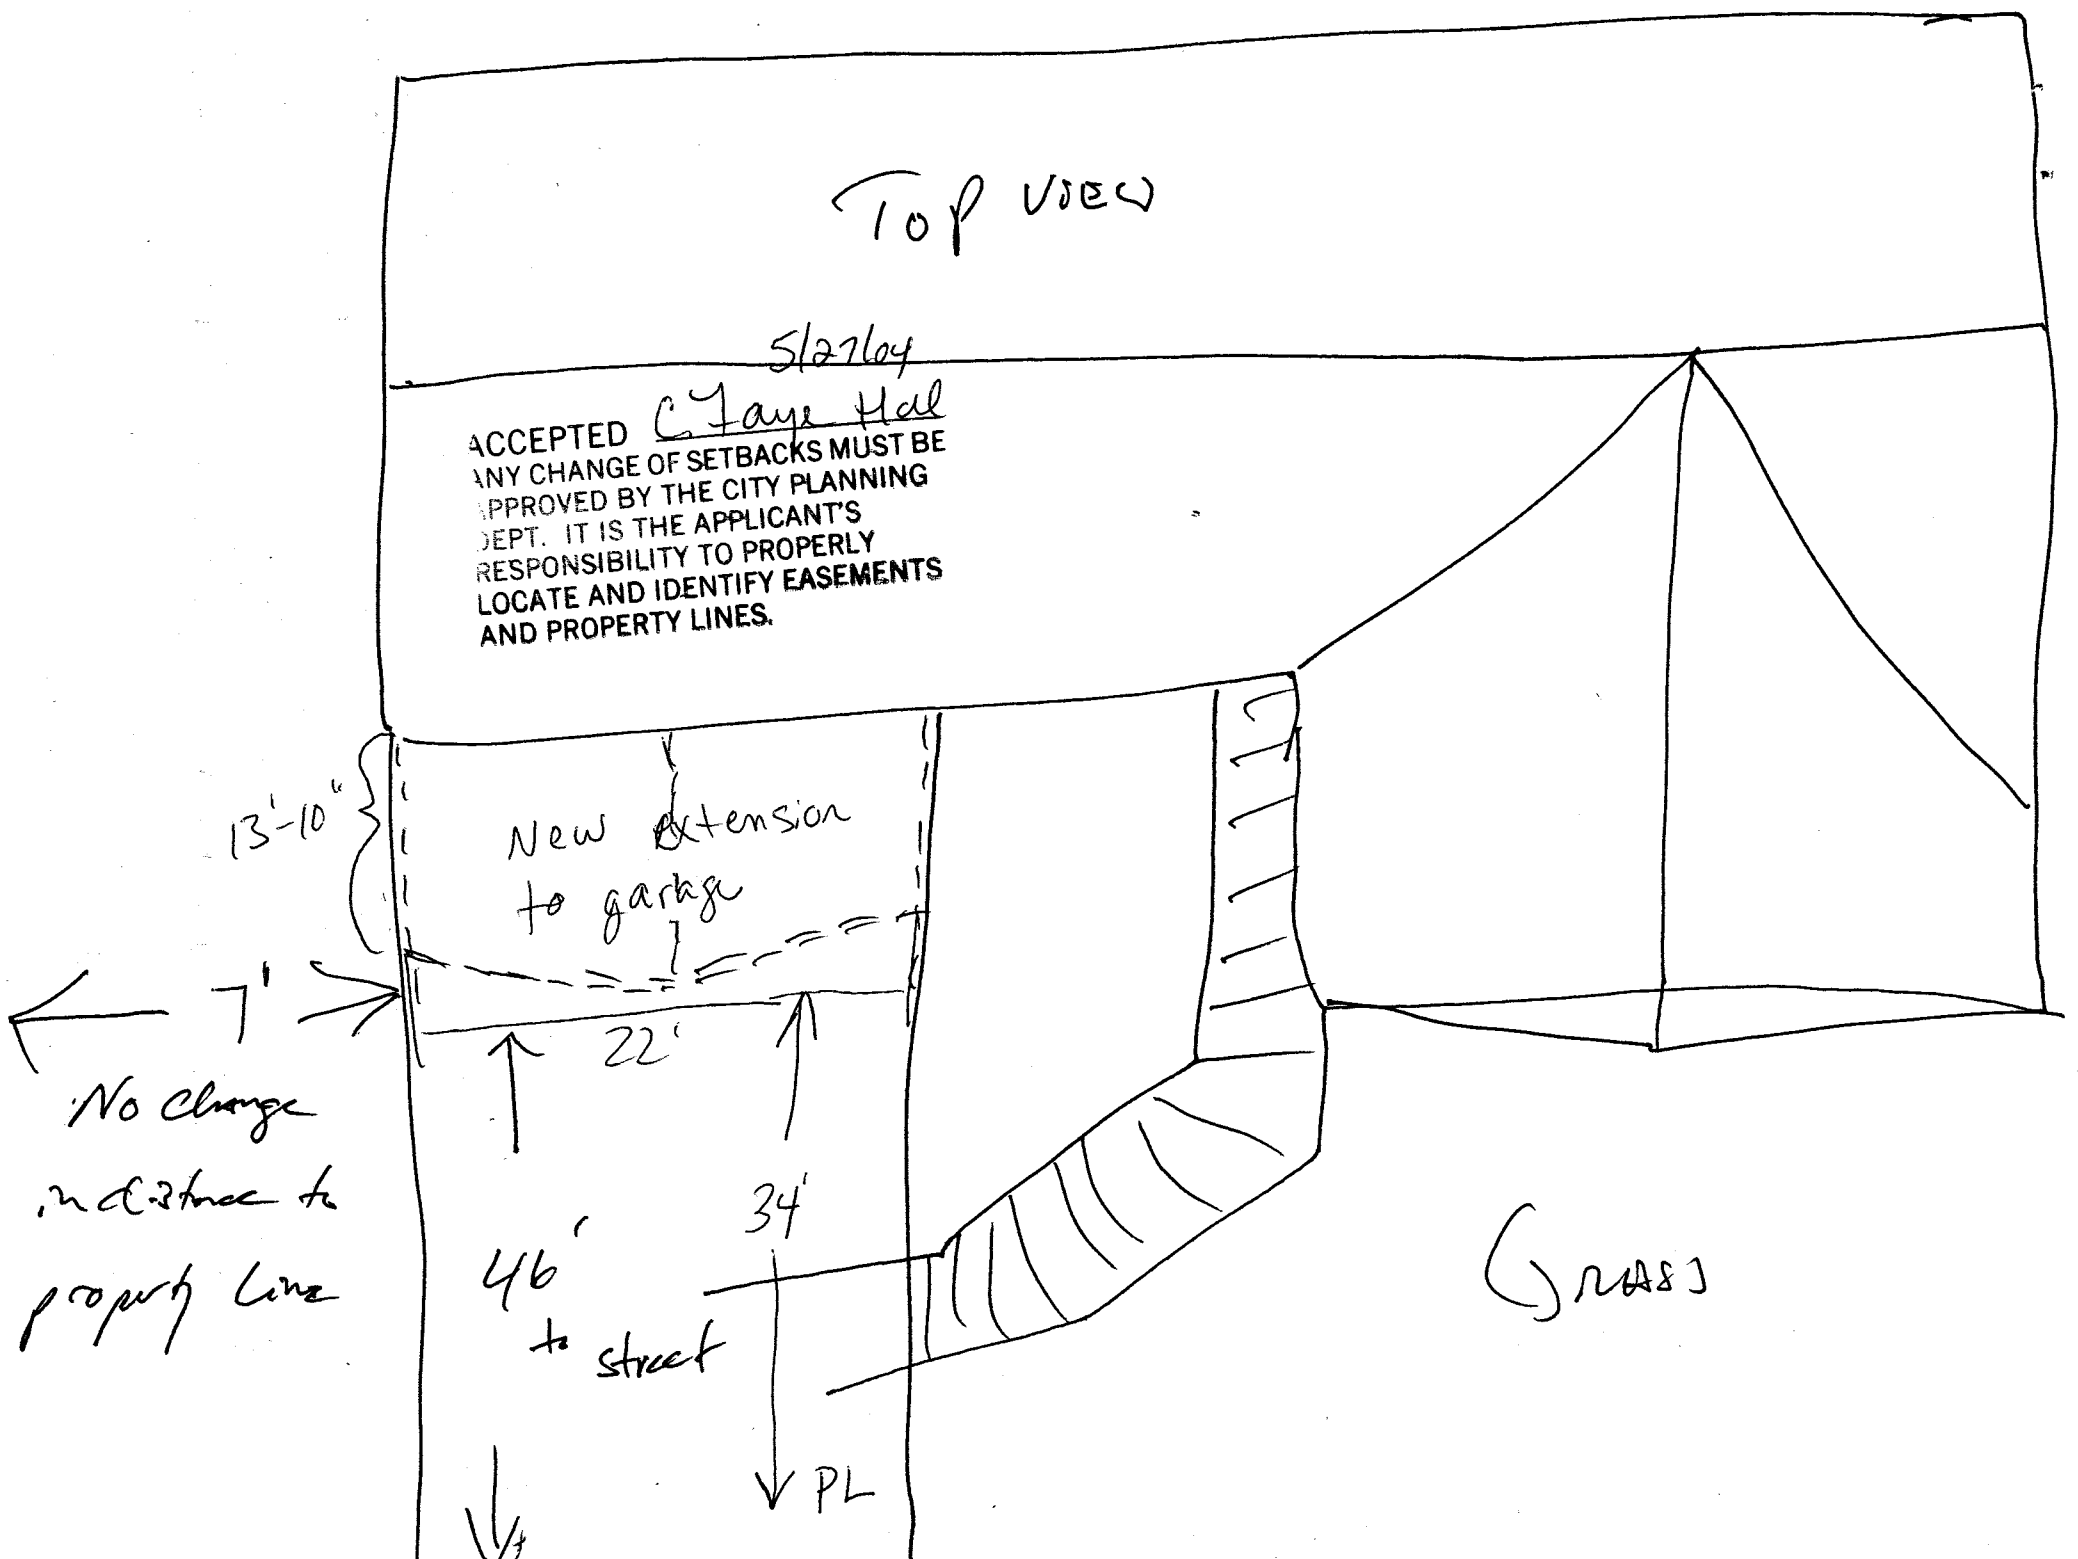 TOP VIEW
5/27/04
ACCEPTED C. Faye Hall
ANY CHANGE OF SETBACKS MUST BE
APPROVED BY THE CITY PLANNING
DEPT. IT IS THE APPLICANT'S
RESPONSIBILITY TO PROPERLY
LOCATE AND IDENTIFY EASEMENTS
AND PROPERTY LINES.
13'-10"
New extension
to garage
7'
22'
No change
in distance to
property line
34'
46'
to street
PL
GRASS